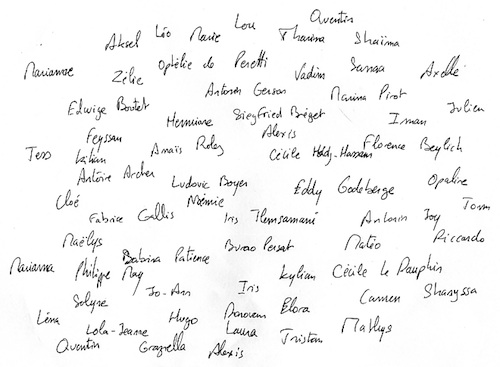 Lou Quentin
Aksel Léo Marie Tharina Shaïma
Marianne Zélie Ophélie de Peretti Vadim Sanaa Axelle
Antonin Gerson Marina Pirot
Edwige Boutet Hermine Siegfried Bréget Iman Julien
Feyssan Alexis
Tess Lilian Anaïs Rolez Cécile Hadj-Hassam Florence Beylich
Antoine Archer Ludovic Boyer Eddy Godeberge Opaline
Cloé Noémie Tom
Fabrice Gallis Iris Antonin Joy
Maëlys Bureau Persat Matéo Riccardo
Babrina Patience
Marianna Philippe May Kylian Cécile Le Dauphin
Jo-Ann Iris
Solyne Donovan Elora Carmen Shanyssa
Léna Hugo
Lola-Jeanne Laura Mathys
Quentin Graziella Alexis Tristan